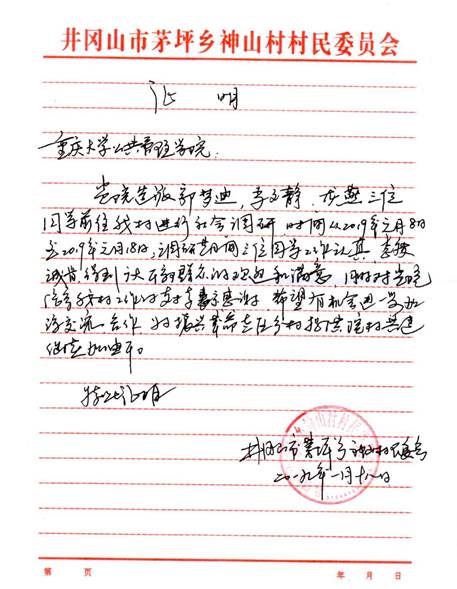 井冈山市茅坪乡神山村村民委员会
证 明
重庆大学公共管理学院:
贵院选派郭梦迪,李文静、 三位
同学前往我村进行社会调研 时间从2019年元月8日
至2019年元月18日,调研期间三位同学工作认真 态度
诚恳,得到了 群众的欢迎和满意 同时对贵院
对我村工作的支持表示感谢 希望有机会进一步加
强交流合作 为振兴革命老区乡村 院村共建
继续加油。
特此证明
井冈山市茅坪乡神山村民委员会
二〇一九年一月十八日
第 页
年 月 日